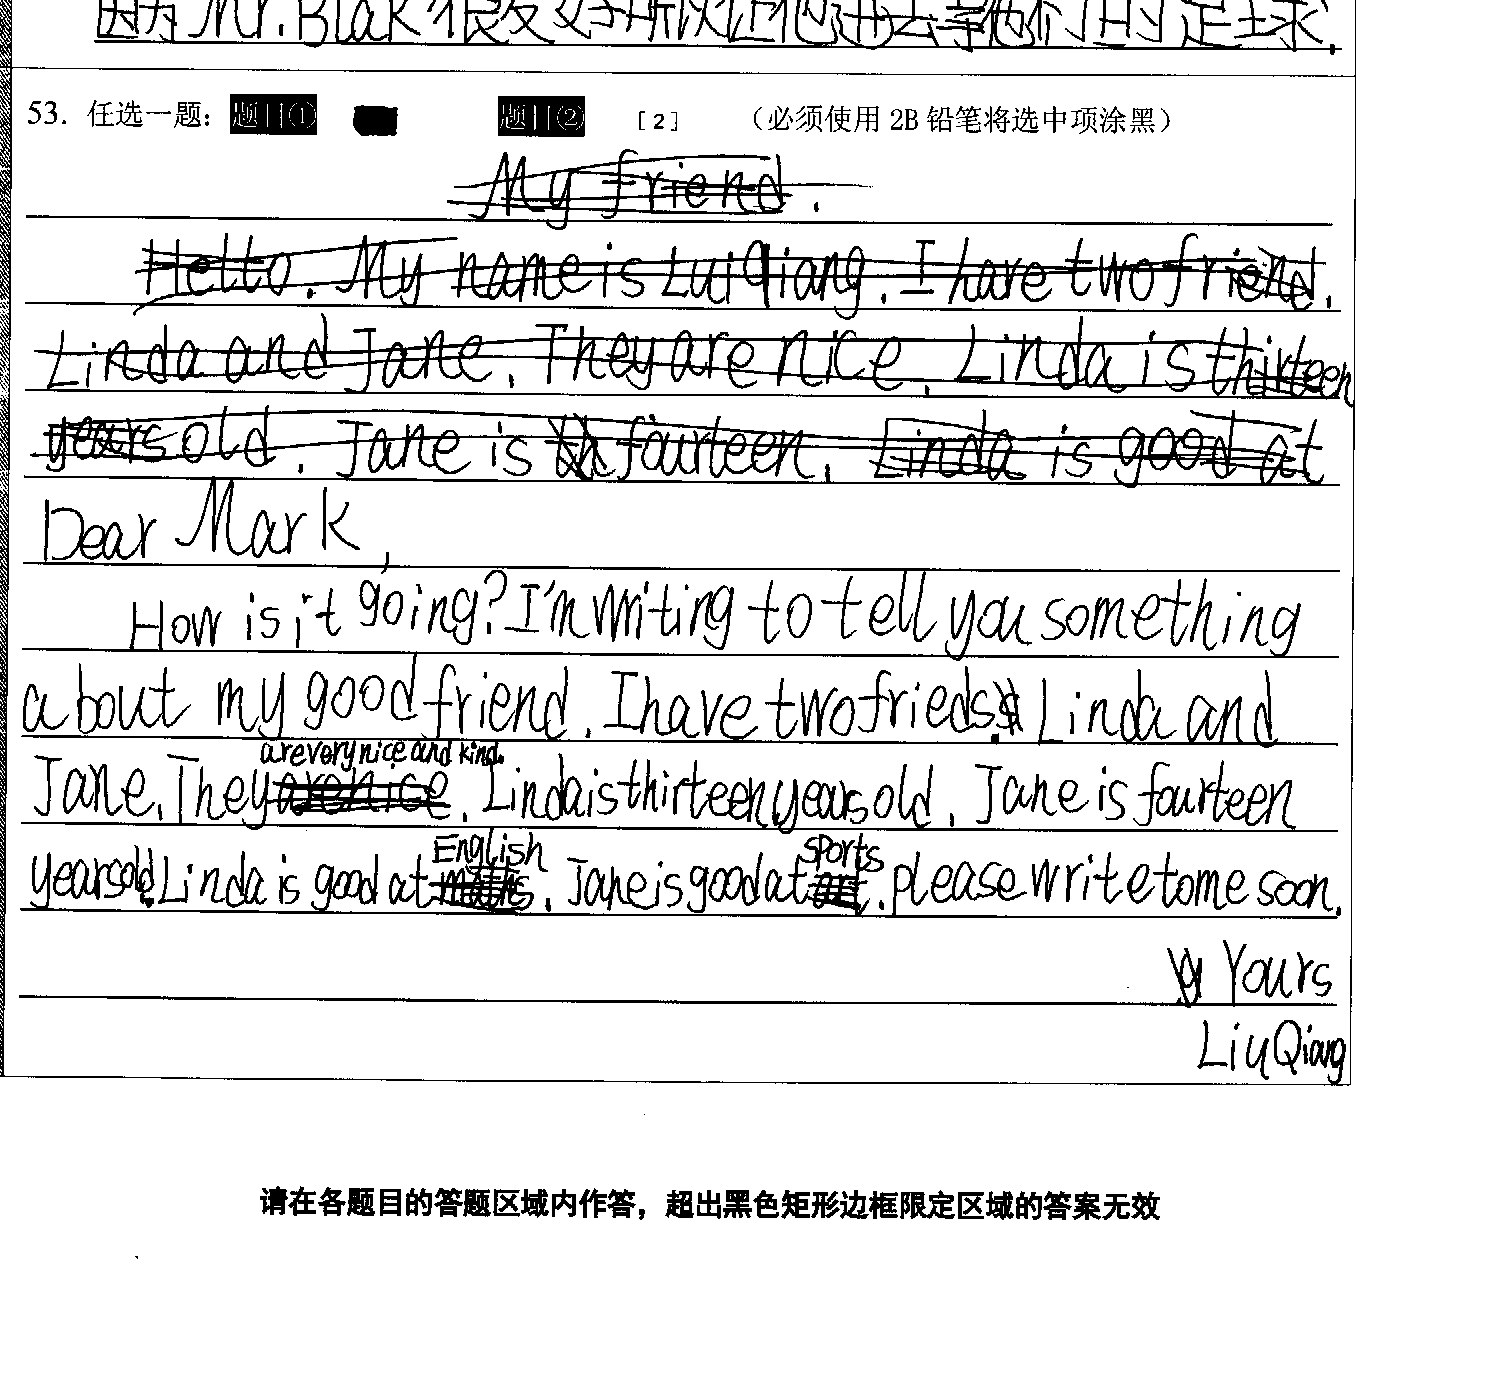 因为Mr.Blak很友好所以让他进去拿他们的足球.
53. 任选一题: 题目① 题目② [2] (必须使用 2B 铅笔将选中项涂黑)
My friend.
Hello. My name is Lui Qiang. I have two friend.
Linda and Jane. They are nice. Linda is thirteen
years old. Jane is fourteen. Linda is good at
Dear Mark,
How is it going? I'm writing to tell you something
about my good friend. I have two frieds. Linda and
are very nice and kind.
Jane. They are nice. Linda is thirteen years old. Jane is fourteen
English sports
years old. Linda is good at maths. Jane is good at art. please write to me soon.
Yours
Liu Qiang
请在各题目的答题区域内作答，超出黑色矩形边框限定区域的答案无效